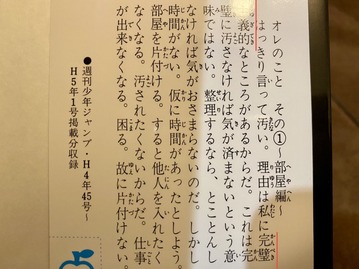 オレのこと　その①〜部屋編〜
はっきり言って汚い。理由は私に完璧
主義的なところがあるからだ。これは完
璧に汚さなければ気が済まないという意
味ではない。整理するなら、とことんし
なければ気がおさまらないのだ。しかし
時間がない。仮に時間があったとしよう。
部屋を片付ける。すると他人を入れたく
なくなる。汚されたくないからだ。仕事
が出来なくなる。困る。故に片付けない。
●週刊少年ジャンプ・H4年45号〜
H5年1号掲載分収録